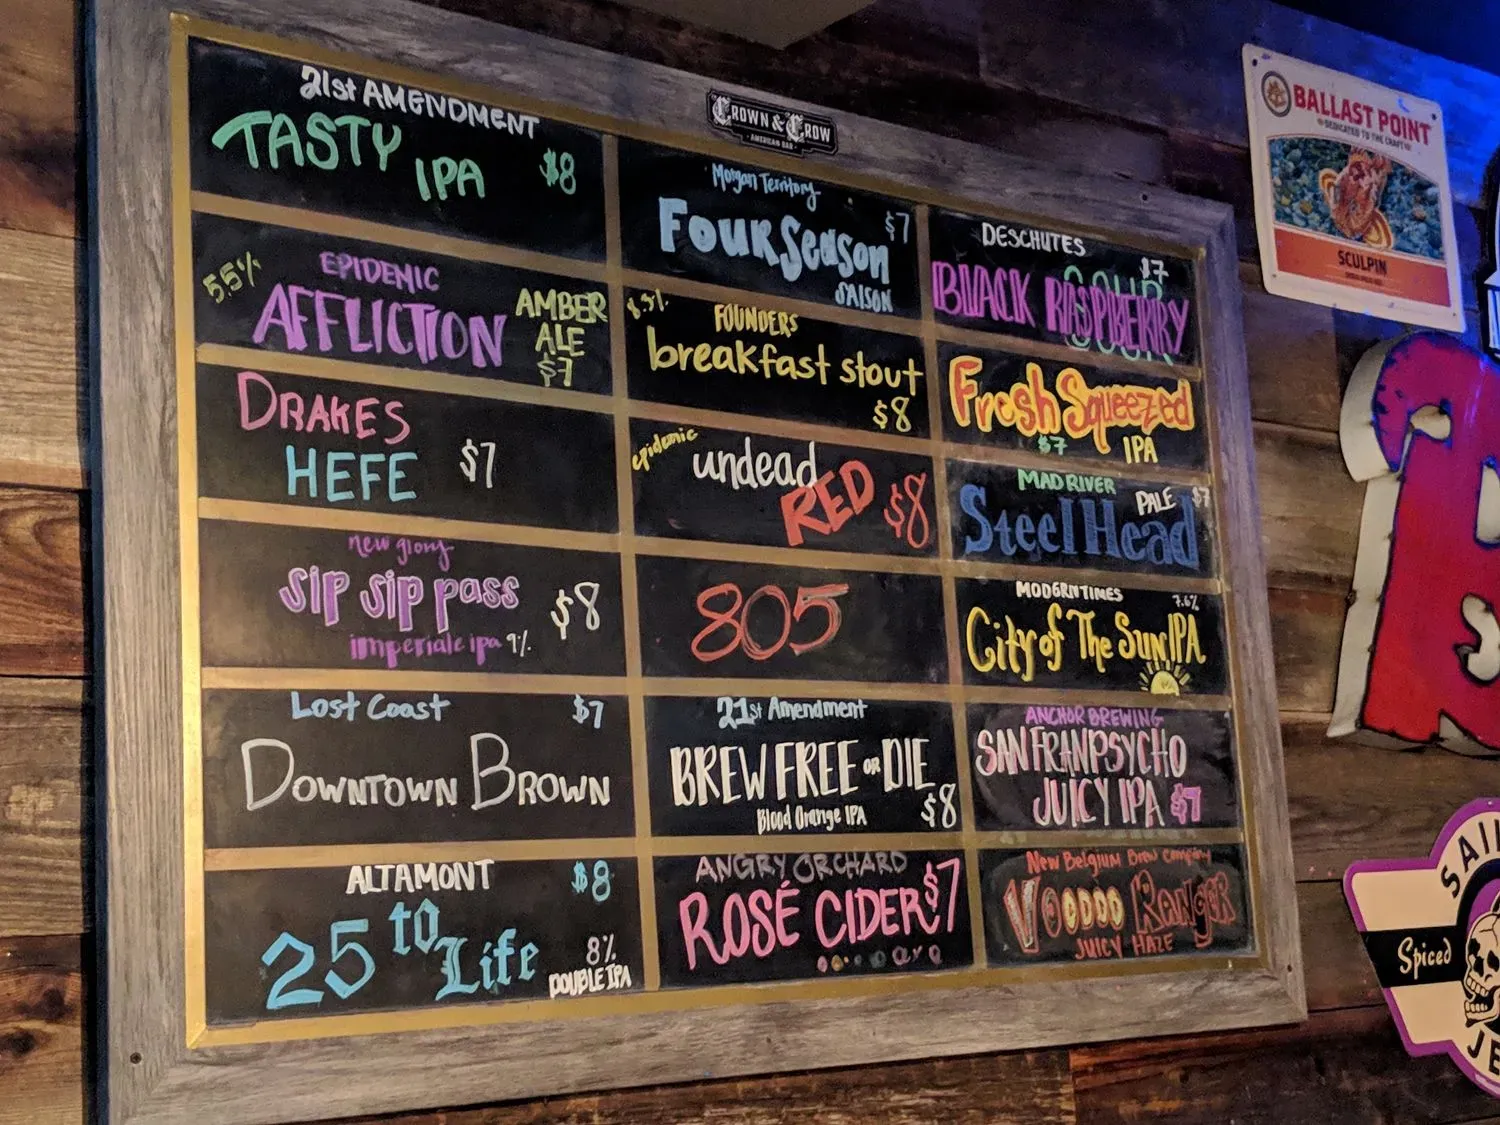 CROWN & CROW
AMERICAN BAR
21st AMENDMENT
TASTY IPA $8
5.5%
EPIDEMIC
AFFLICTION
AMBER
ALE
$7
DRAKES
HEFE $7
new glory
sip sip pass
imperiale ipa 9%
$8
Lost Coast $7
DOWNTOWN BROWN
ALTAMONT $8
25 to Life
8%
DOUBLE IPA
Morgan Territory
$7
FOUR SEASON
SAISON
FOUNDERS
breakfast stout
$8
epidemic
undead
RED $8
805
21st Amendment
BREW FREE OR DIE
Blood Orange IPA $8
ANGRY ORCHARD
ROSÉ CIDER $7
DESCHUTES
$7
BLACK RASPBERRY
SOUR
Fresh Squeezed
$7 IPA
MAD RIVER
PALE $7
Steel Head
MODERN TIMES 7.6%
City of The Sun IPA
ANCHOR BREWING
SAN FRANPSYCHO
JUICY IPA $7
New Belgium Brew Company
VOODOO RANGER
JUICY HAZE
BALLAST POINT
DEDICATED TO THE CRAFT
SCULPIN
SAI
Spiced
JE